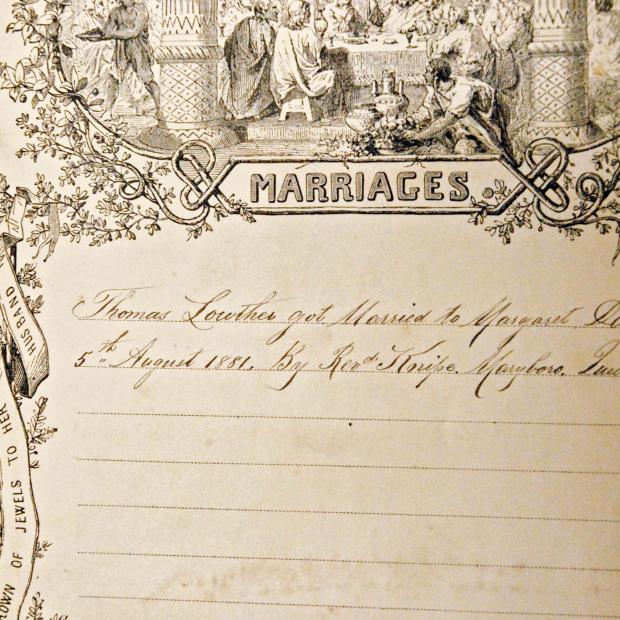 MARRIAGES.
Thomas Lowther got Married to Margaret
5th August 1881. By Revd Knipe. Maryboro.
HUSBAND
OF JEWELS TO HER